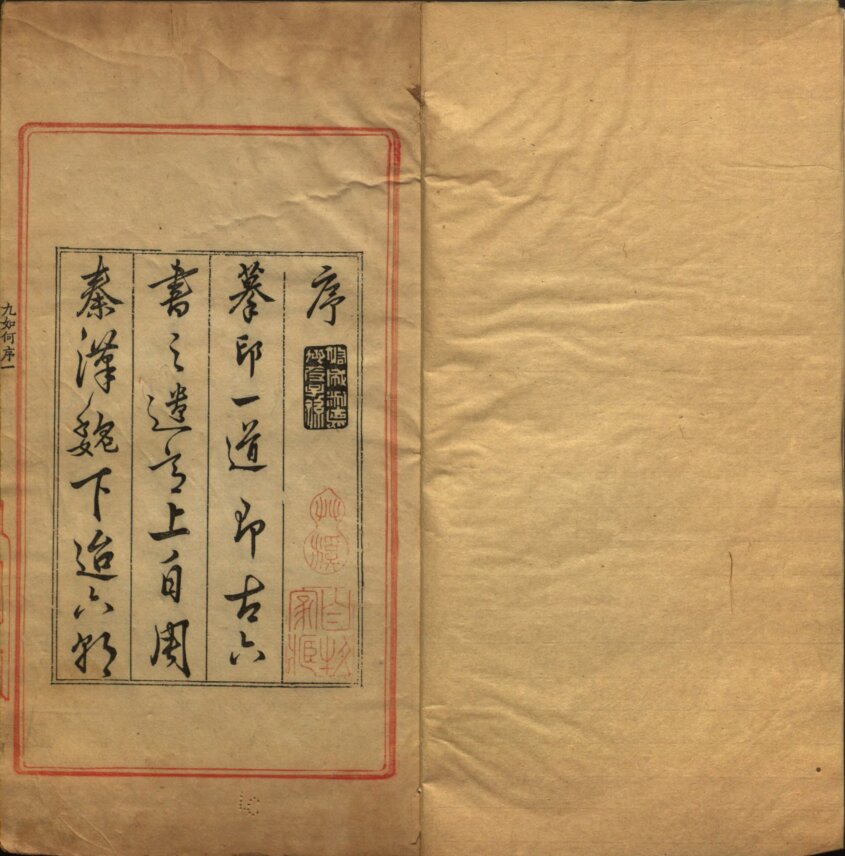 序
摹印一道即古六
書之遺意上自周
秦漢魏下迨六朝
九如何序一